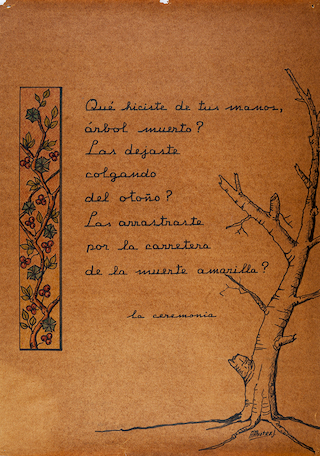 Qué hiciste de tus manos,
árbol muerto?
Las dejaste
colgando
del otoño?
Las arrastraste
por la carretera
de la muerte amarilla?
la ceremonia